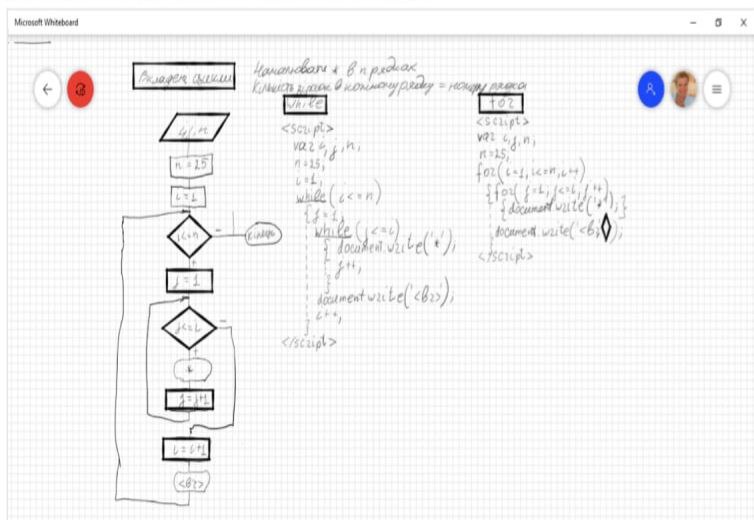 Microsoft Whiteboard
Вкладені цикли
Намалювати * в n рядках
Кількість зірок в кожному рядку = номеру рядка
i, j, n
n = 25
i = 1
i<=n
-
Кінець
+
j = 1
j<=i
-
+
*
j = j+1
i = i+1
<br>
while
<script>
var i, j, n;
n=25;
i=1;
while (i<=n)
{ j=1;
while (j<=i)
{ document.write('*');
j++;
}
document.write('<br>');
i++;
}
</script>
for
<script>
var i, j, n;
n=25;
for (i=1; i<=n; i++)
{ for (j=1; j<=i; j++)
{ document.write('*'); }
document.write('<b
</script>